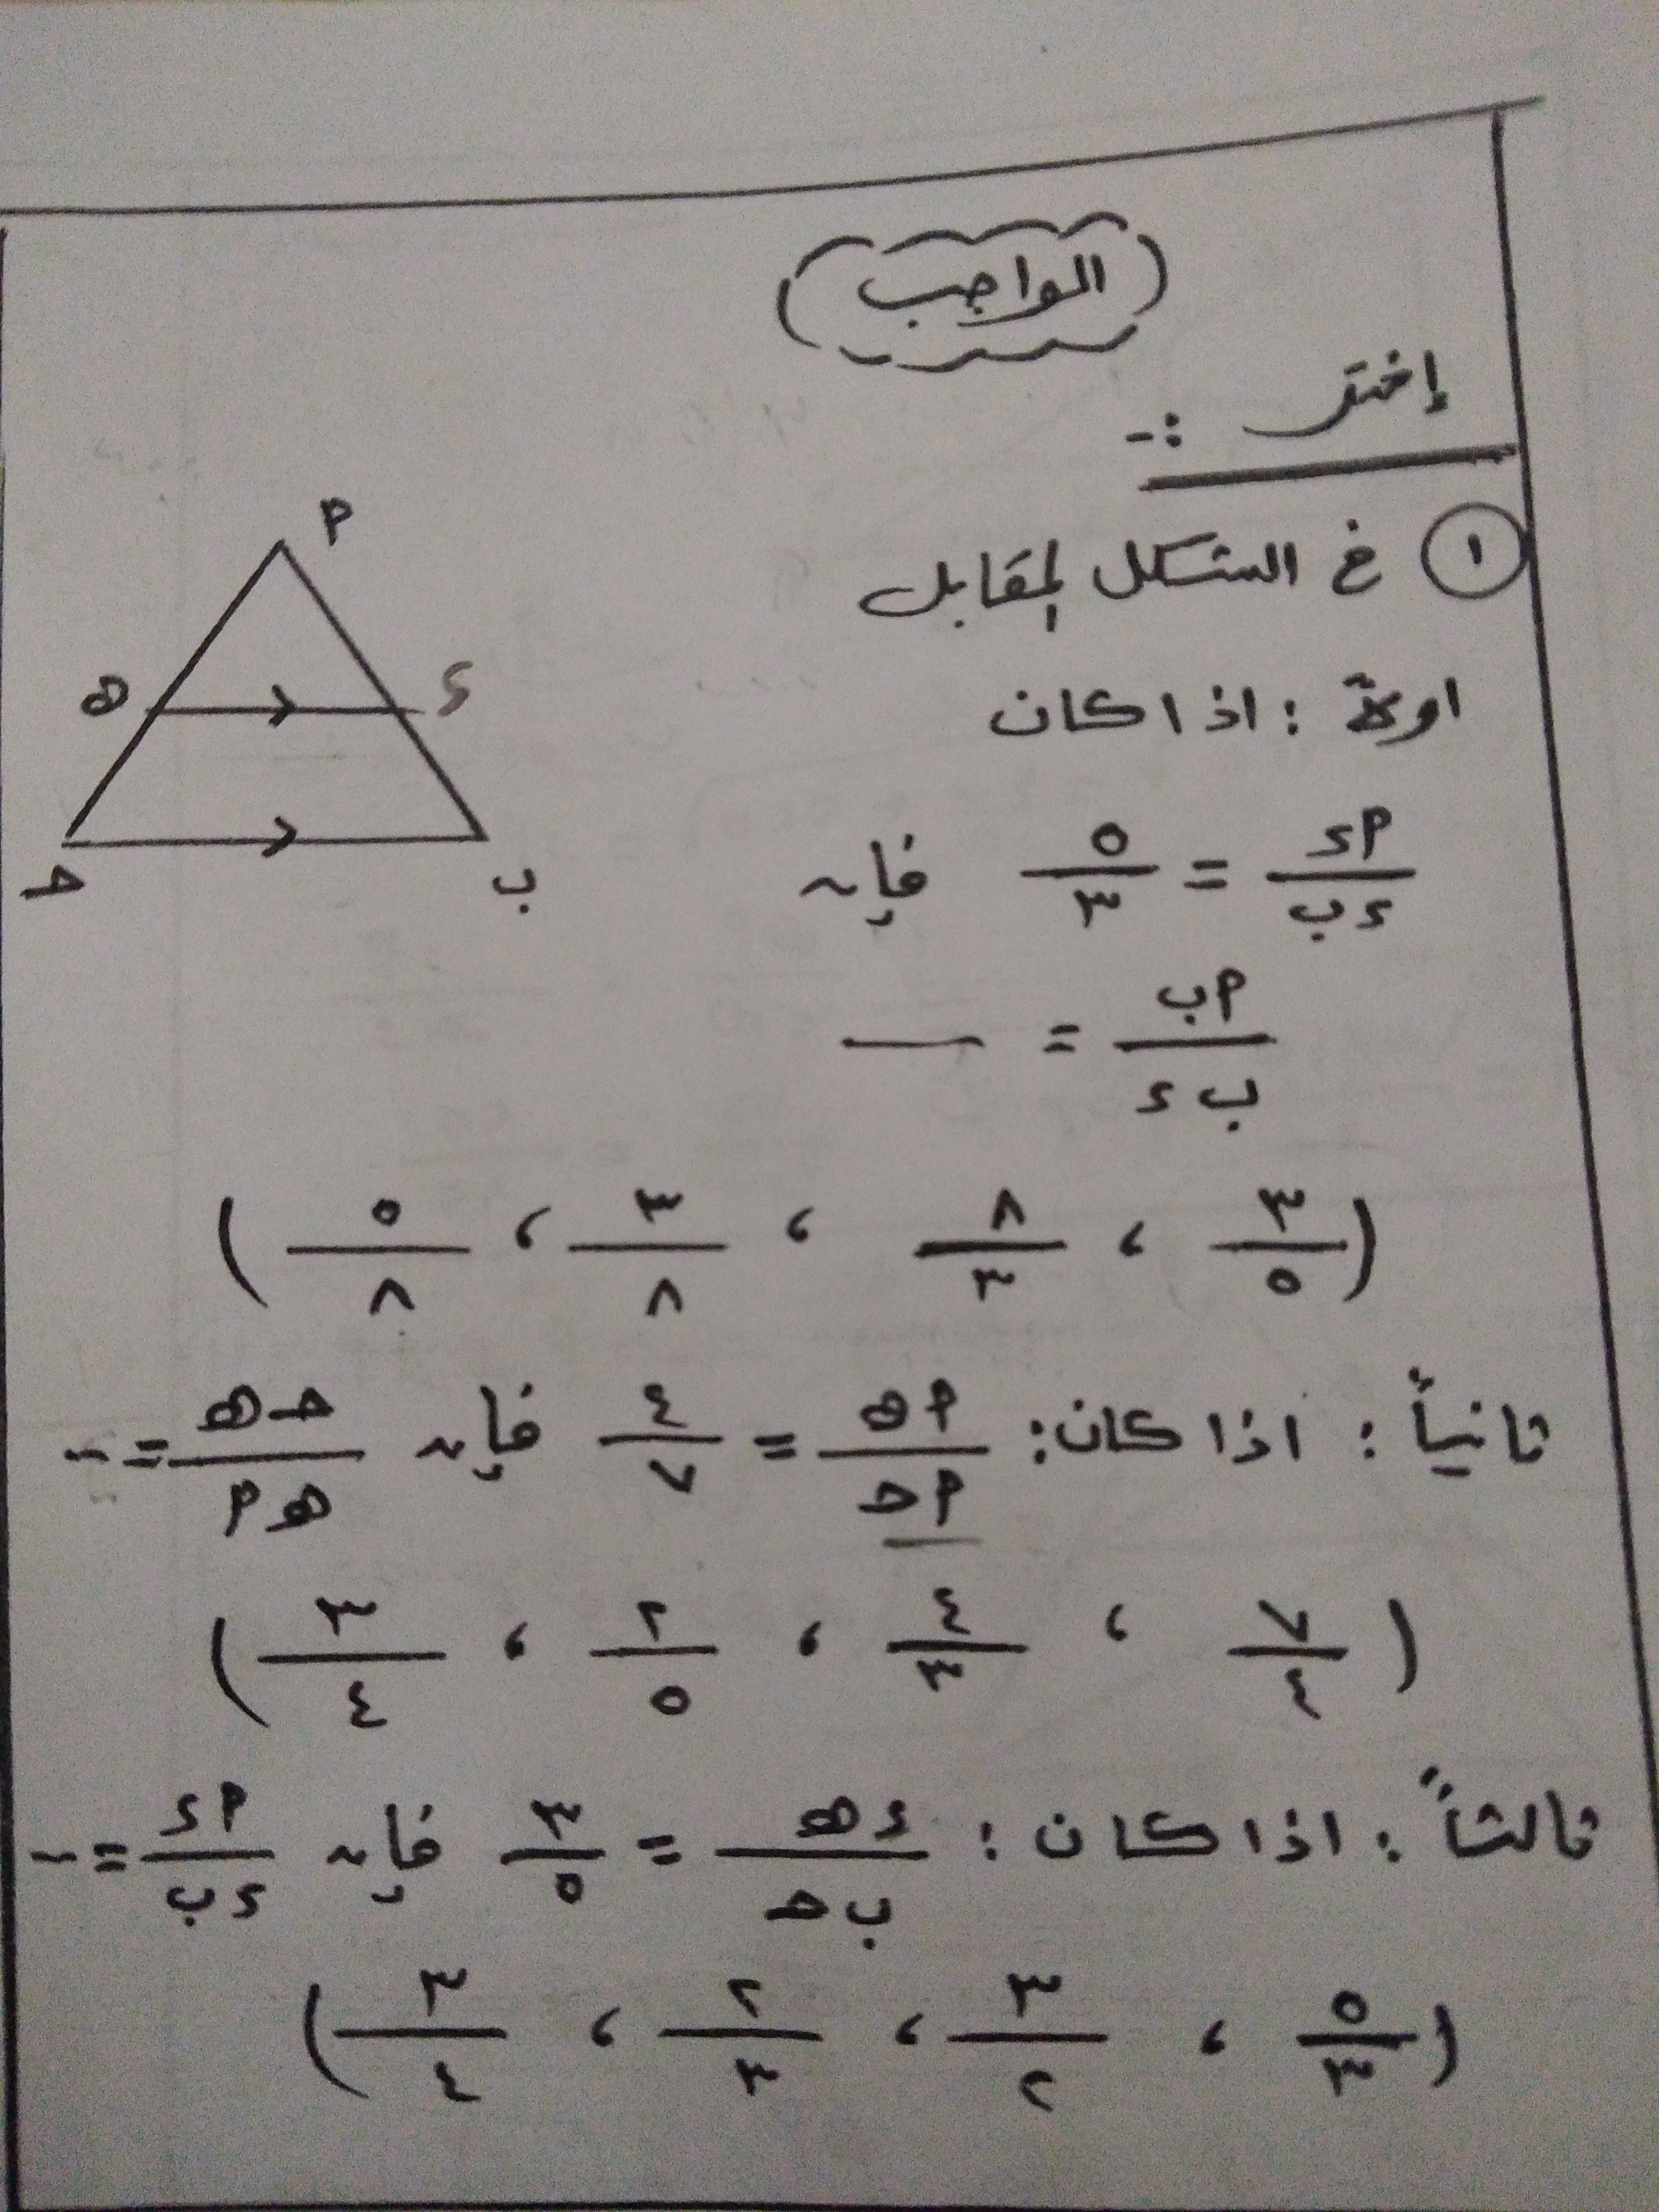 الواجب
إختر :-
١ في الشكل المقابل
أ
ء
ه
ب
حـ
اولاً : اذا كان
أء / ءب = ٥ / ٣ فإن
أب / ب ء = —
(٣/٥ ، ٨/٣ ، ٣/٨ ، ٥/٨)
ثانياً : اذا كان : أه / أحـ = ٤ / ٧ فإن حـه / هأ = --
(٧/٤ ، ٤/٣ ، ٢/٥ ، ٣/٤)
ثالثاً : اذا كان : ءه / ب حـ = ٣ / ٥ فإن أء / ءب = --
(٥/٣ ، ٣/٢ ، ٢/٣ ، ٣/٤)